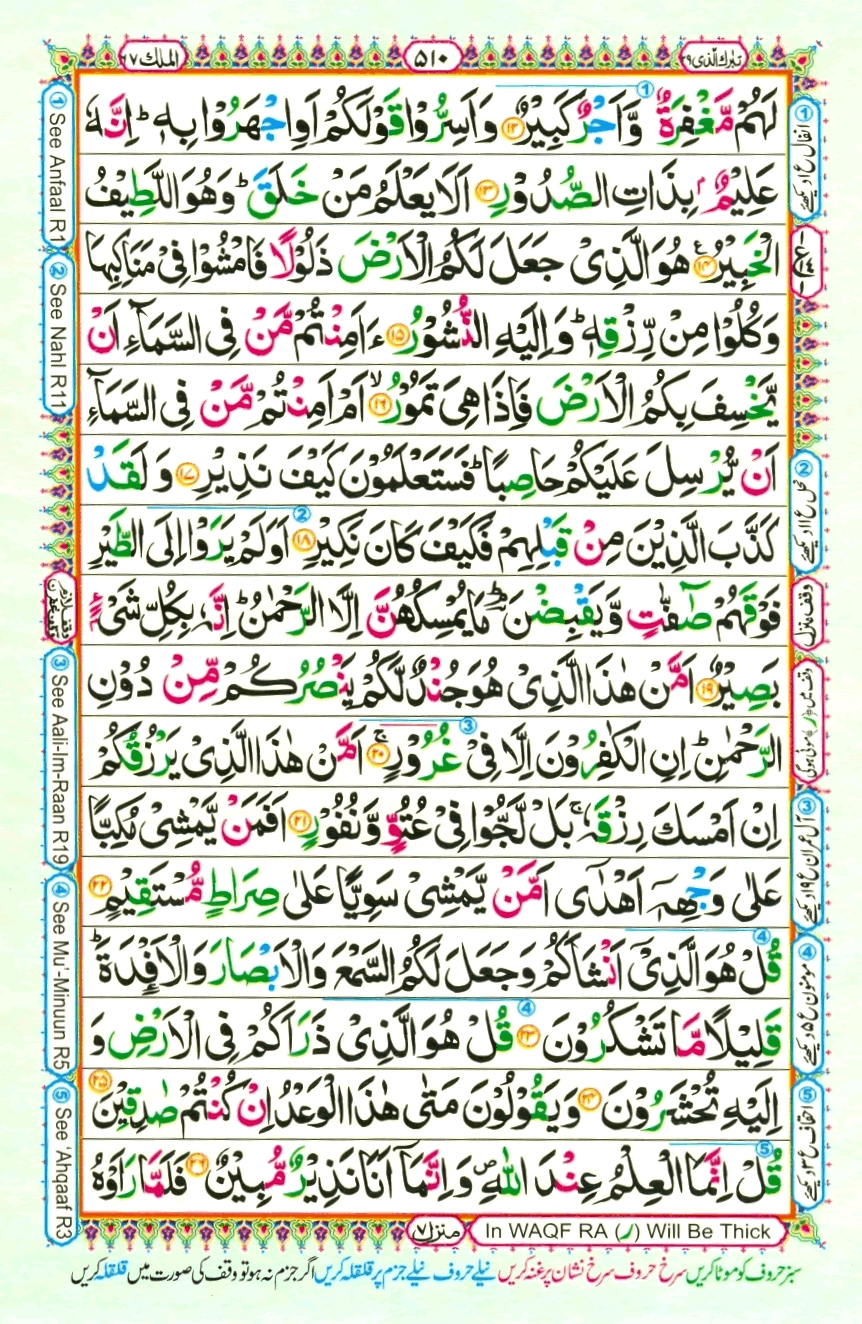 تبٰرك الذی ۲۹
۵۱۰
الملك ۶۷
لَهُمْ مَّغْفِرَةٌ وَّاَجْرٌ كَبِيْرٌ ﴿۱۲﴾ وَاَسِرُّوْا قَوْلَكُمْ اَوِ اجْهَرُوْا بِهٖ ؕ اِنَّهٗ
عَلِيْمٌۢ بِذَاتِ الصُّدُوْرِ ﴿۱۳﴾ اَلَا يَعْلَمُ مَنْ خَلَقَ ؕ وَهُوَ اللَّطِيْفُ
الْخَبِيْرُ ﴿۱۴﴾ هُوَ الَّذِيْ جَعَلَ لَكُمُ الْاَرْضَ ذَلُوْلًا فَامْشُوْا فِيْ مَنَاكِبِهَا
وَكُلُوْا مِنْ رِّزْقِهٖ ؕ وَاِلَيْهِ النُّشُوْرُ ﴿۱۵﴾ ءَاَمِنْتُمْ مَّنْ فِي السَّمَآءِ اَنْ
يَّخْسِفَ بِكُمُ الْاَرْضَ فَاِذَا هِيَ تَمُوْرُ ﴿۱۶﴾ اَمْ اَمِنْتُمْ مَّنْ فِي السَّمَآءِ
اَنْ يُّرْسِلَ عَلَيْكُمْ حَاصِبًا ؕ فَسَتَعْلَمُوْنَ كَيْفَ نَذِيْرِ ﴿۱۷﴾ وَلَقَدْ
كَذَّبَ الَّذِيْنَ مِنْ قَبْلِهِمْ فَكَيْفَ كَانَ نَكِيْرِ ﴿۱۸﴾ اَوَلَمْ يَرَوْا اِلَى الطَّيْرِ
فَوْقَهُمْ صٰٓفّٰتٍ وَّيَقْبِضْنَ ؕ مَا يُمْسِكُهُنَّ اِلَّا الرَّحْمٰنُ ؕ اِنَّهٗ بِكُلِّ شَيْءٍۢ
بَصِيْرٌ ﴿۱۹﴾ اَمَّنْ هٰذَا الَّذِيْ هُوَ جُنْدٌ لَّكُمْ يَنْصُرُكُمْ مِّنْ دُوْنِ
الرَّحْمٰنِ ؕ اِنِ الْكٰفِرُوْنَ اِلَّا فِيْ غُرُوْرٍ ﴿۲۰﴾ اَمَّنْ هٰذَا الَّذِيْ يَرْزُقُكُمْ
اِنْ اَمْسَكَ رِزْقَهٗ ۚ بَلْ لَّجُّوْا فِيْ عُتُوٍّ وَّنُفُوْرٍ ﴿۲۱﴾ اَفَمَنْ يَّمْشِيْ مُكِبًّا
عَلٰى وَجْهِهٖٓ اَهْدٰٓى اَمَّنْ يَّمْشِيْ سَوِيًّا عَلٰى صِرَاطٍ مُّسْتَقِيْمٍ ﴿۲۲﴾
قُلْ هُوَ الَّذِيْٓ اَنْشَاَكُمْ وَجَعَلَ لَكُمُ السَّمْعَ وَالْاَبْصَارَ وَالْاَفْـِٕدَةَ ؕ
قَلِيْلًا مَّا تَشْكُرُوْنَ ﴿۲۳﴾ قُلْ هُوَ الَّذِيْ ذَرَاَكُمْ فِي الْاَرْضِ وَ
اِلَيْهِ تُحْشَرُوْنَ ﴿۲۴﴾ وَيَقُوْلُوْنَ مَتٰى هٰذَا الْوَعْدُ اِنْ كُنْتُمْ صٰدِقِيْنَ ﴿۲۵﴾
قُلْ اِنَّمَا الْعِلْمُ عِنْدَ اللّٰهِ ۪ وَاِنَّمَآ اَنَا نَذِيْرٌ مُّبِيْنٌ ﴿۲۶﴾ فَلَمَّا رَاَوْهُ
① انفال ع ۱ دیکھئے
② نحل ع ۱۱ دیکھئے
وقف منزل
③ آل عمران ع ۱۹ دیکھئے
④ مومنون ع ۵ دیکھئے
⑤ احقاف ع ۳ دیکھئے
① See Anfaal R1
② See Nahl R11
وقف لازم
③ See Aali-Im-Raan R19
④ See Mu'-Minuun R5
⑤ See 'Ahqaaf R3
منزل ۷
In WAQF RA (ر) Will Be Thick
سبز حروف کو موٹا کریں سرخ حروف سرخ نشان پر غنہ کریں نیلے حروف نیلے جزم پر قلقلہ کریں اگر جزم نہ ہو تو وقف کی صورت میں قلقلہ کریں